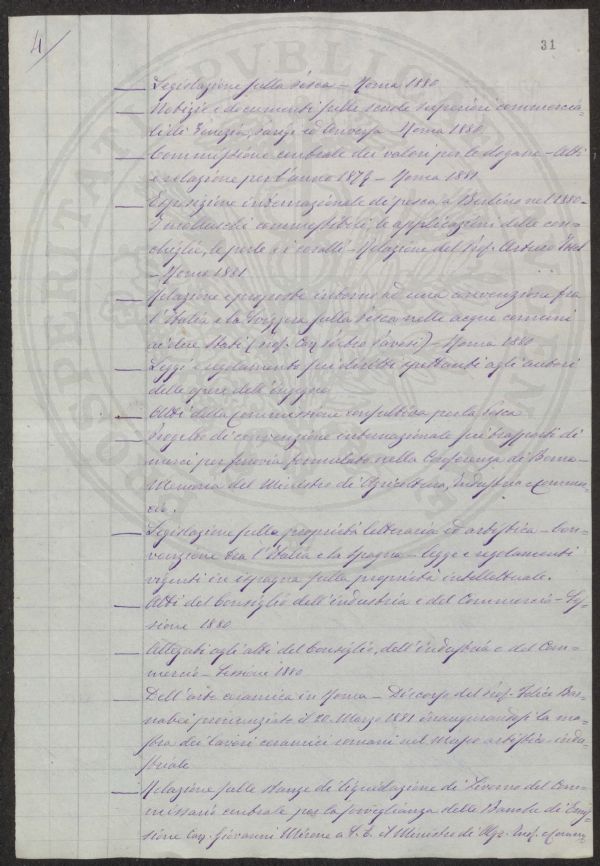 4/
31
— Legislazione sulla pesca – Roma 1880
— Notizie e documenti sulle scuole superiori commercia=
li di Venezia, Parigi ed Anversa – Roma 1880
— Commissione centrale dei valori per le dogane – Atti
e relazione per l'anno 1879 – Roma 1881
— Esposizione internazionale di pesca a Berlino nel 1880 –
I molluschi commestibili, le applicazioni delle con=
chiglie, le perle e i coralli – Relazione del Prof. Arturo Issel
– Roma 1881
— Relazione e proposte intorno ad una convenzione fra
l'Italia e la Svizzera sulla pesca nelle acque comuni
ai due Stati (Prof. Cav. Pietro Pavesi) – Roma 1880
— Leggi e regolamento sui diritti spettanti agli autori
delle opere dell'ingegno
— Atti della Commissione consultiva per la pesca
— Progetto di convenzione internazionale sui trasporti di
merci per ferrovia formulato nella Conferenza di Berna –
Memoria del Ministro di Agricoltura, Industria e Commer=
cio.
— Legislazione sulla proprietà letteraria ed artistica – Con=
venzione tra l'Italia e la Spagna – legge e regolamenti
vigenti in Ispagna sulla proprietà intellettuale.
— Atti del Consiglio dell'industria e del Commercio – Ses=
sione 1880
— Allegati agli atti del Consiglio, dell'industria e del Com=
mercio – Sessione 1880
— Dell'arte ceramica in Roma – Discorso del Prof. Felice Bar=
nabei pronunziato il 20 Marzo 1881 inaugurandosi la mo=
stra dei lavori ceramici romani nel Museo artistico-indu=
striale
— Relazione sulle stanze di liquidazione di Livorno del Com=
missario centrale per la sorveglianza delle Banche di Emis=
sione Cav. Giovanni Mirone a S. E. il Ministro di Agr. Ind. e Comm.